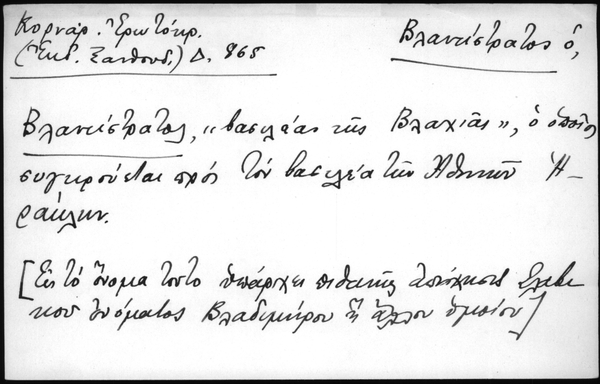 Κορνάρ. Ἐρωτόκρ.
(Ἔκδ. Ξανθουδ.) Δ. 865
Βλαντίστρατος ὁ,
Βλαντίστρατος, «βασιλέας τῆς Βλαχιᾶς», ὁ ὁποῖος
συγκρούεται πρός τόν βασιλέα τῶν Ἀθηνῶν Ἡ-
ράκλην.
[Εἰς τό ὄνομα τοῦτο ὑπάρχει πιθανῶς ἀπήχησις Σλαβι
κοῦ ὀνόματος Βλαδιμήρου ἤ ἄλλου ὁμοίου]